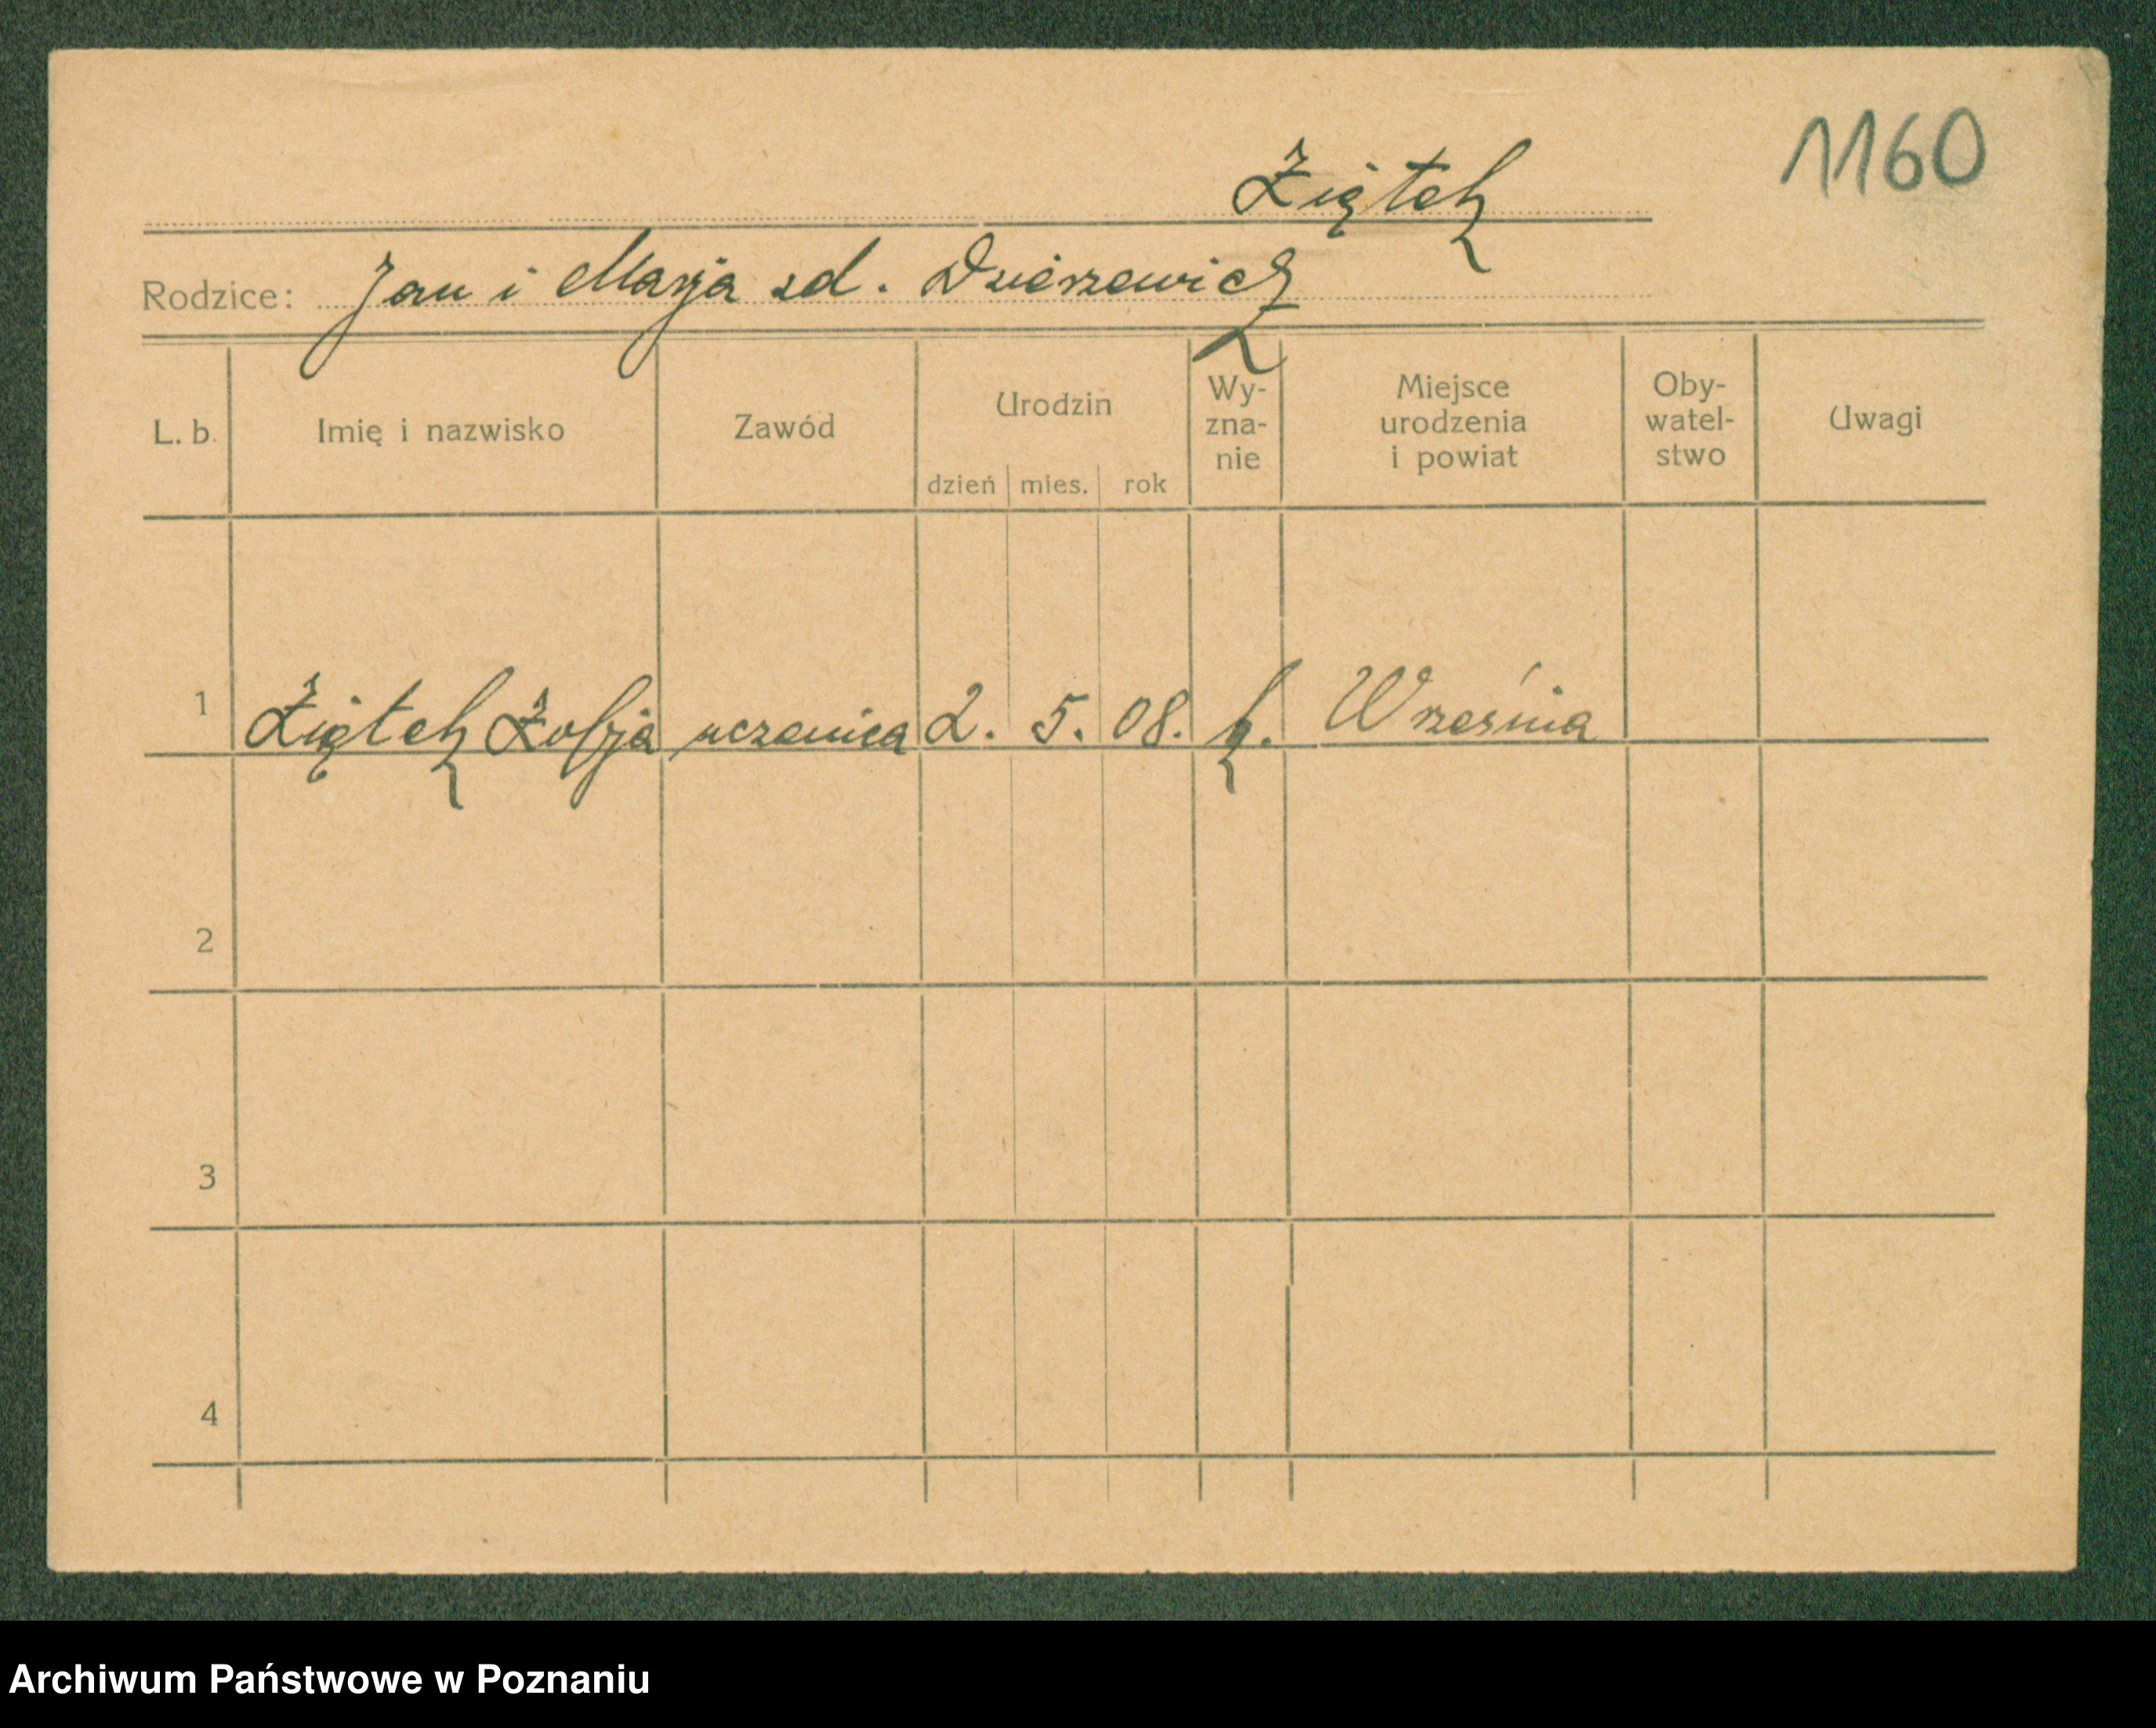 1160
Ziątek
Rodzice: Jan i Marja zd.
L. b. Imię i nazwisko Zawód Urodzin dzień mies. rok Wy-zna-nie Miejsce urodzenia i powiat Oby-watel-stwo Uwagi
1 Ziątek Zofja uczenica 2. 5. 08. k. Września
2
3
4
Archiwum Państwowe w Poznaniu